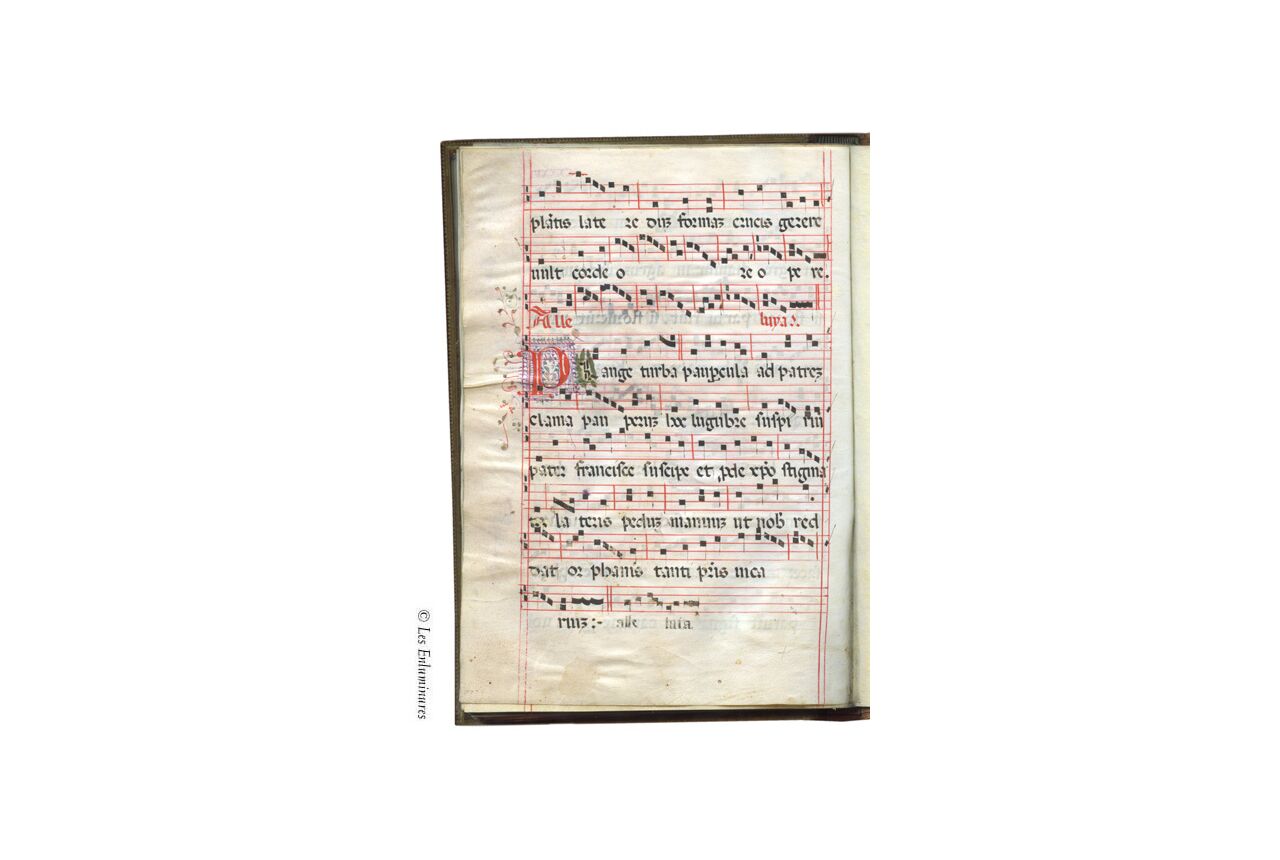 plātis late re duꝫ formaꝫ crucis gerere
uult corde o re o pe re.
Alle luya :.
Plange turba paupercula ad patreꝫ
clama pau peruꝫ hoc lugubre suspi riū
pater francisce suscipe et pde xpō stigma
ta la teris peduꝫ manuuꝫ ut nob red
dat or phanis tanti pris uica
riuꝫ :- alle luia.
© Les Enluminures